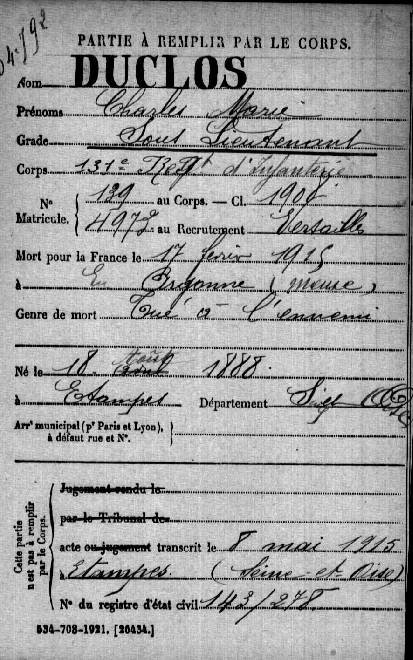 PARTIE À REMPLIR PAR LE CORPS.
Nom DUCLOS
Prénoms Charles Marie
Grade Sous Lieutenant
Corps 131e Regt d'Infanterie
N° Matricule. 139 au Corps. — Cl. 1908
4972 au Recrutement Versailles
Mort pour la France le 17 février 1915
à En Argonne (Meuse)
Genre de mort Tué à l'ennemi
Né le 18 Août 1888
à Etampes Département S. et O.
Arrt municipal (pr Paris et Lyon),
à défaut rue et N°.
Cette partie n'est pas à remplir par le Corps.
Jugement rendu le
par le Tribunal de
acte ou jugement transcrit le 8 mai 1915
Etampes (Seine-et-Oise)
N° du registre d'état civil 143/278
534-708-1921. [26434.]